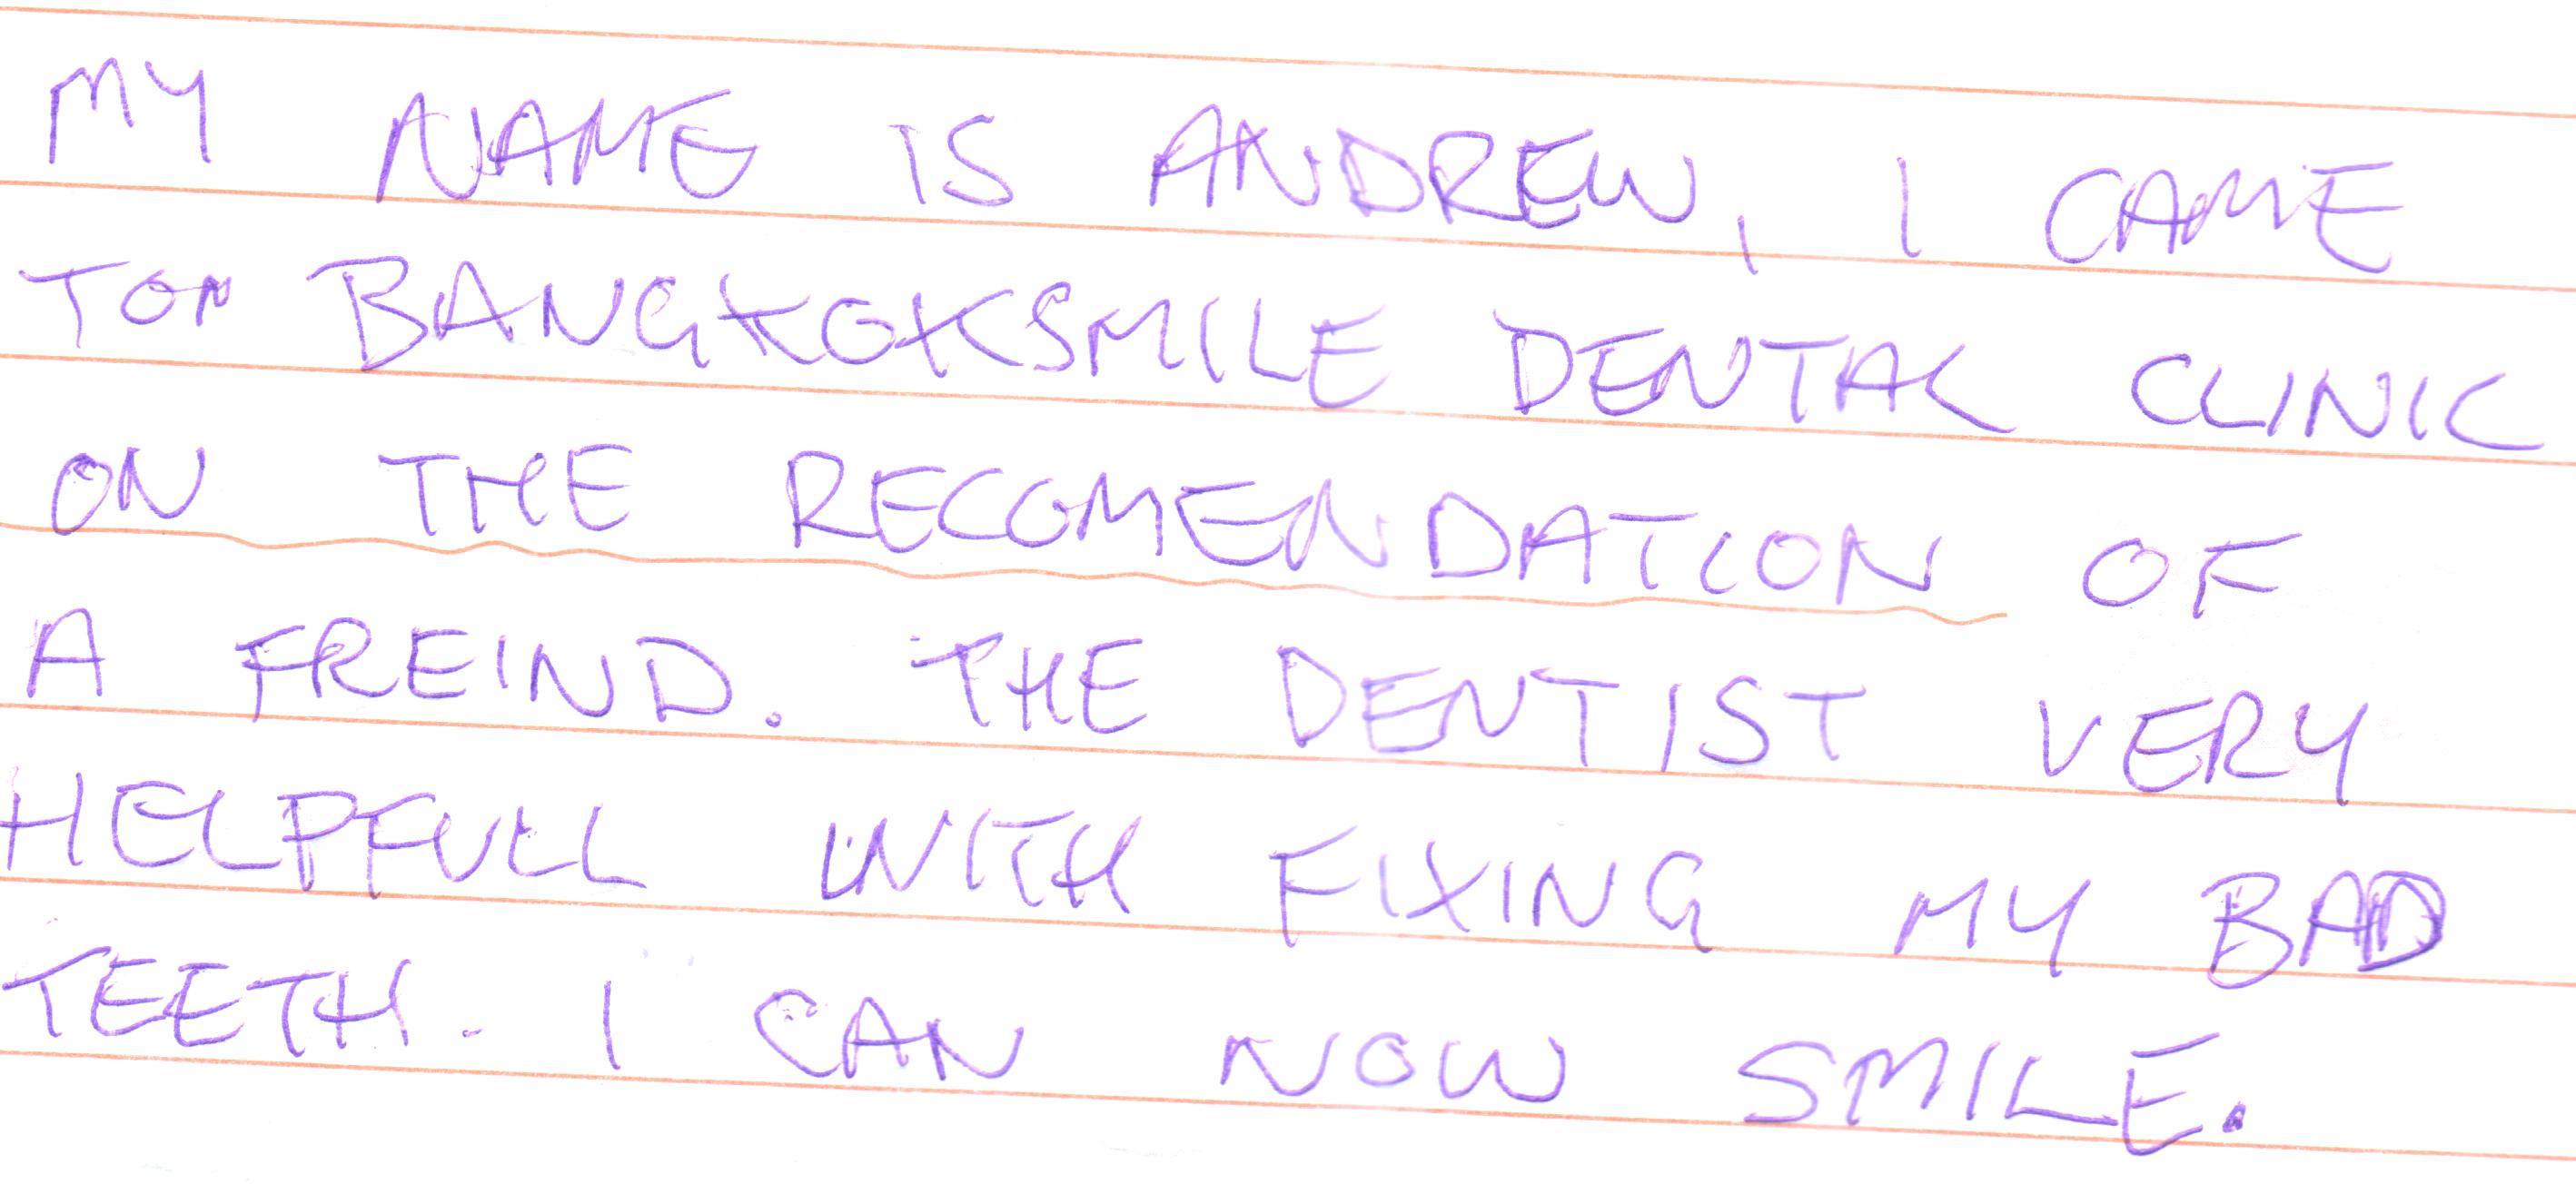 MY NAME IS ANDREW, I CAME
TOM BANGKOKSMILE DENTAL CLINIC
ON THE RECOMENDATION OF
A FREIND. THE DENTIST VERY
HELPFULL WITH FIXING MY BAD
TEETH. I CAN NOW SMILE.